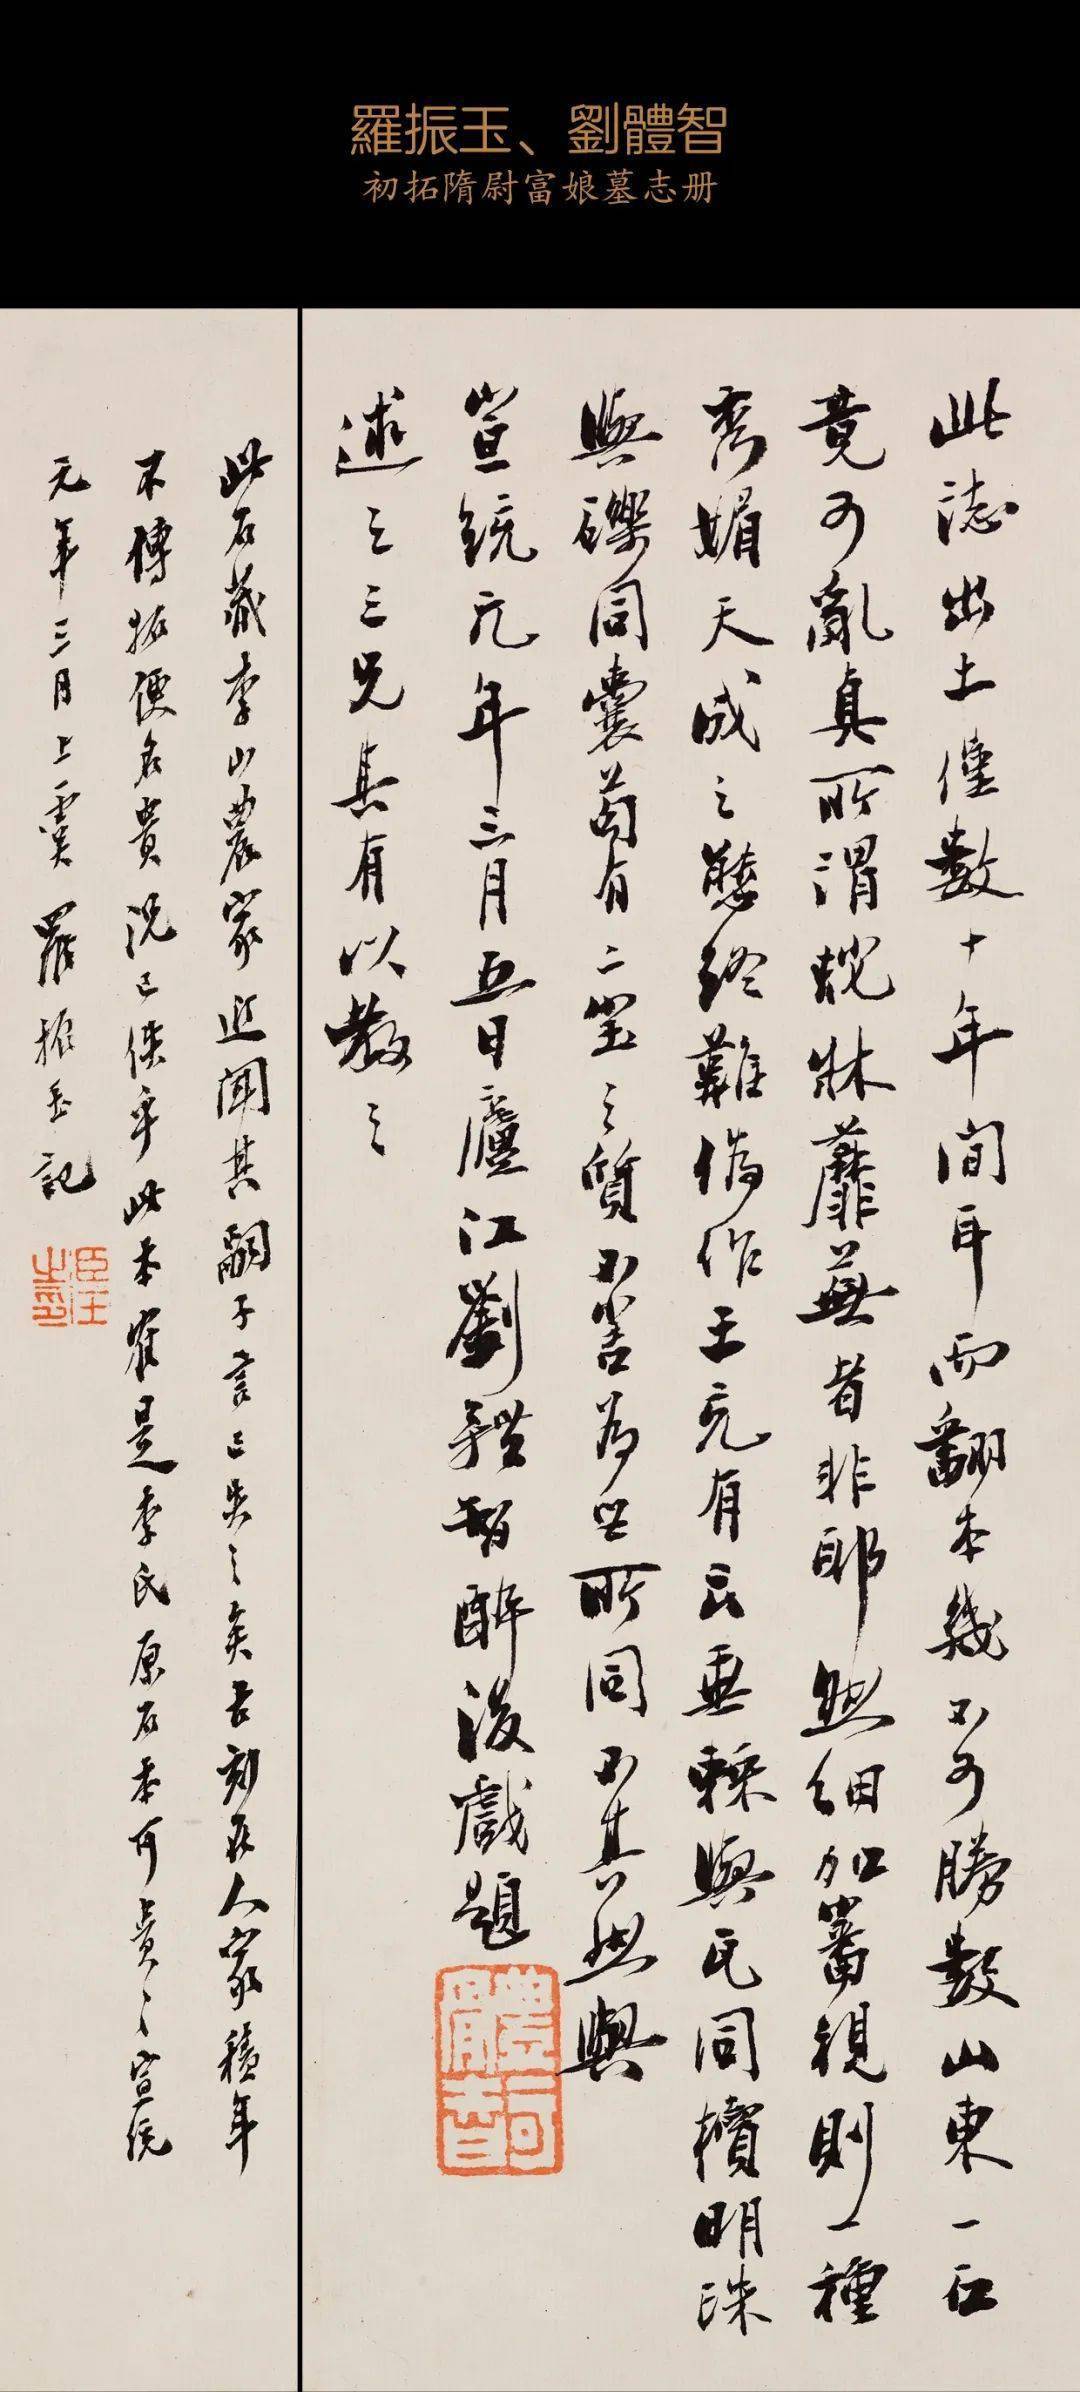 羅振玉、劉體智
初拓隋尉富娘墓志册
此誌出土僅數十年間耳而翻本幾不可勝數山東一石
竟可亂真所謂蛇牀蘼蕪者非耶然細加審視則一種
秀媚天成之態終難偽作王元有云垂棘與瓦同櫝明珠
與礫同囊苟有二寶之質不害為世所同不其然與
宣統元年三月五日廬江劉體智醉後戲題
述之三兄其有以教之
體智
此石藏李山農家近聞其嗣子言已失之矣古刻在人家積年
不傳拓便名貴況已佚乎此本確是李氏原石本可貴可貴宣統
元年三月上虞羅振玉記
臣玉之印